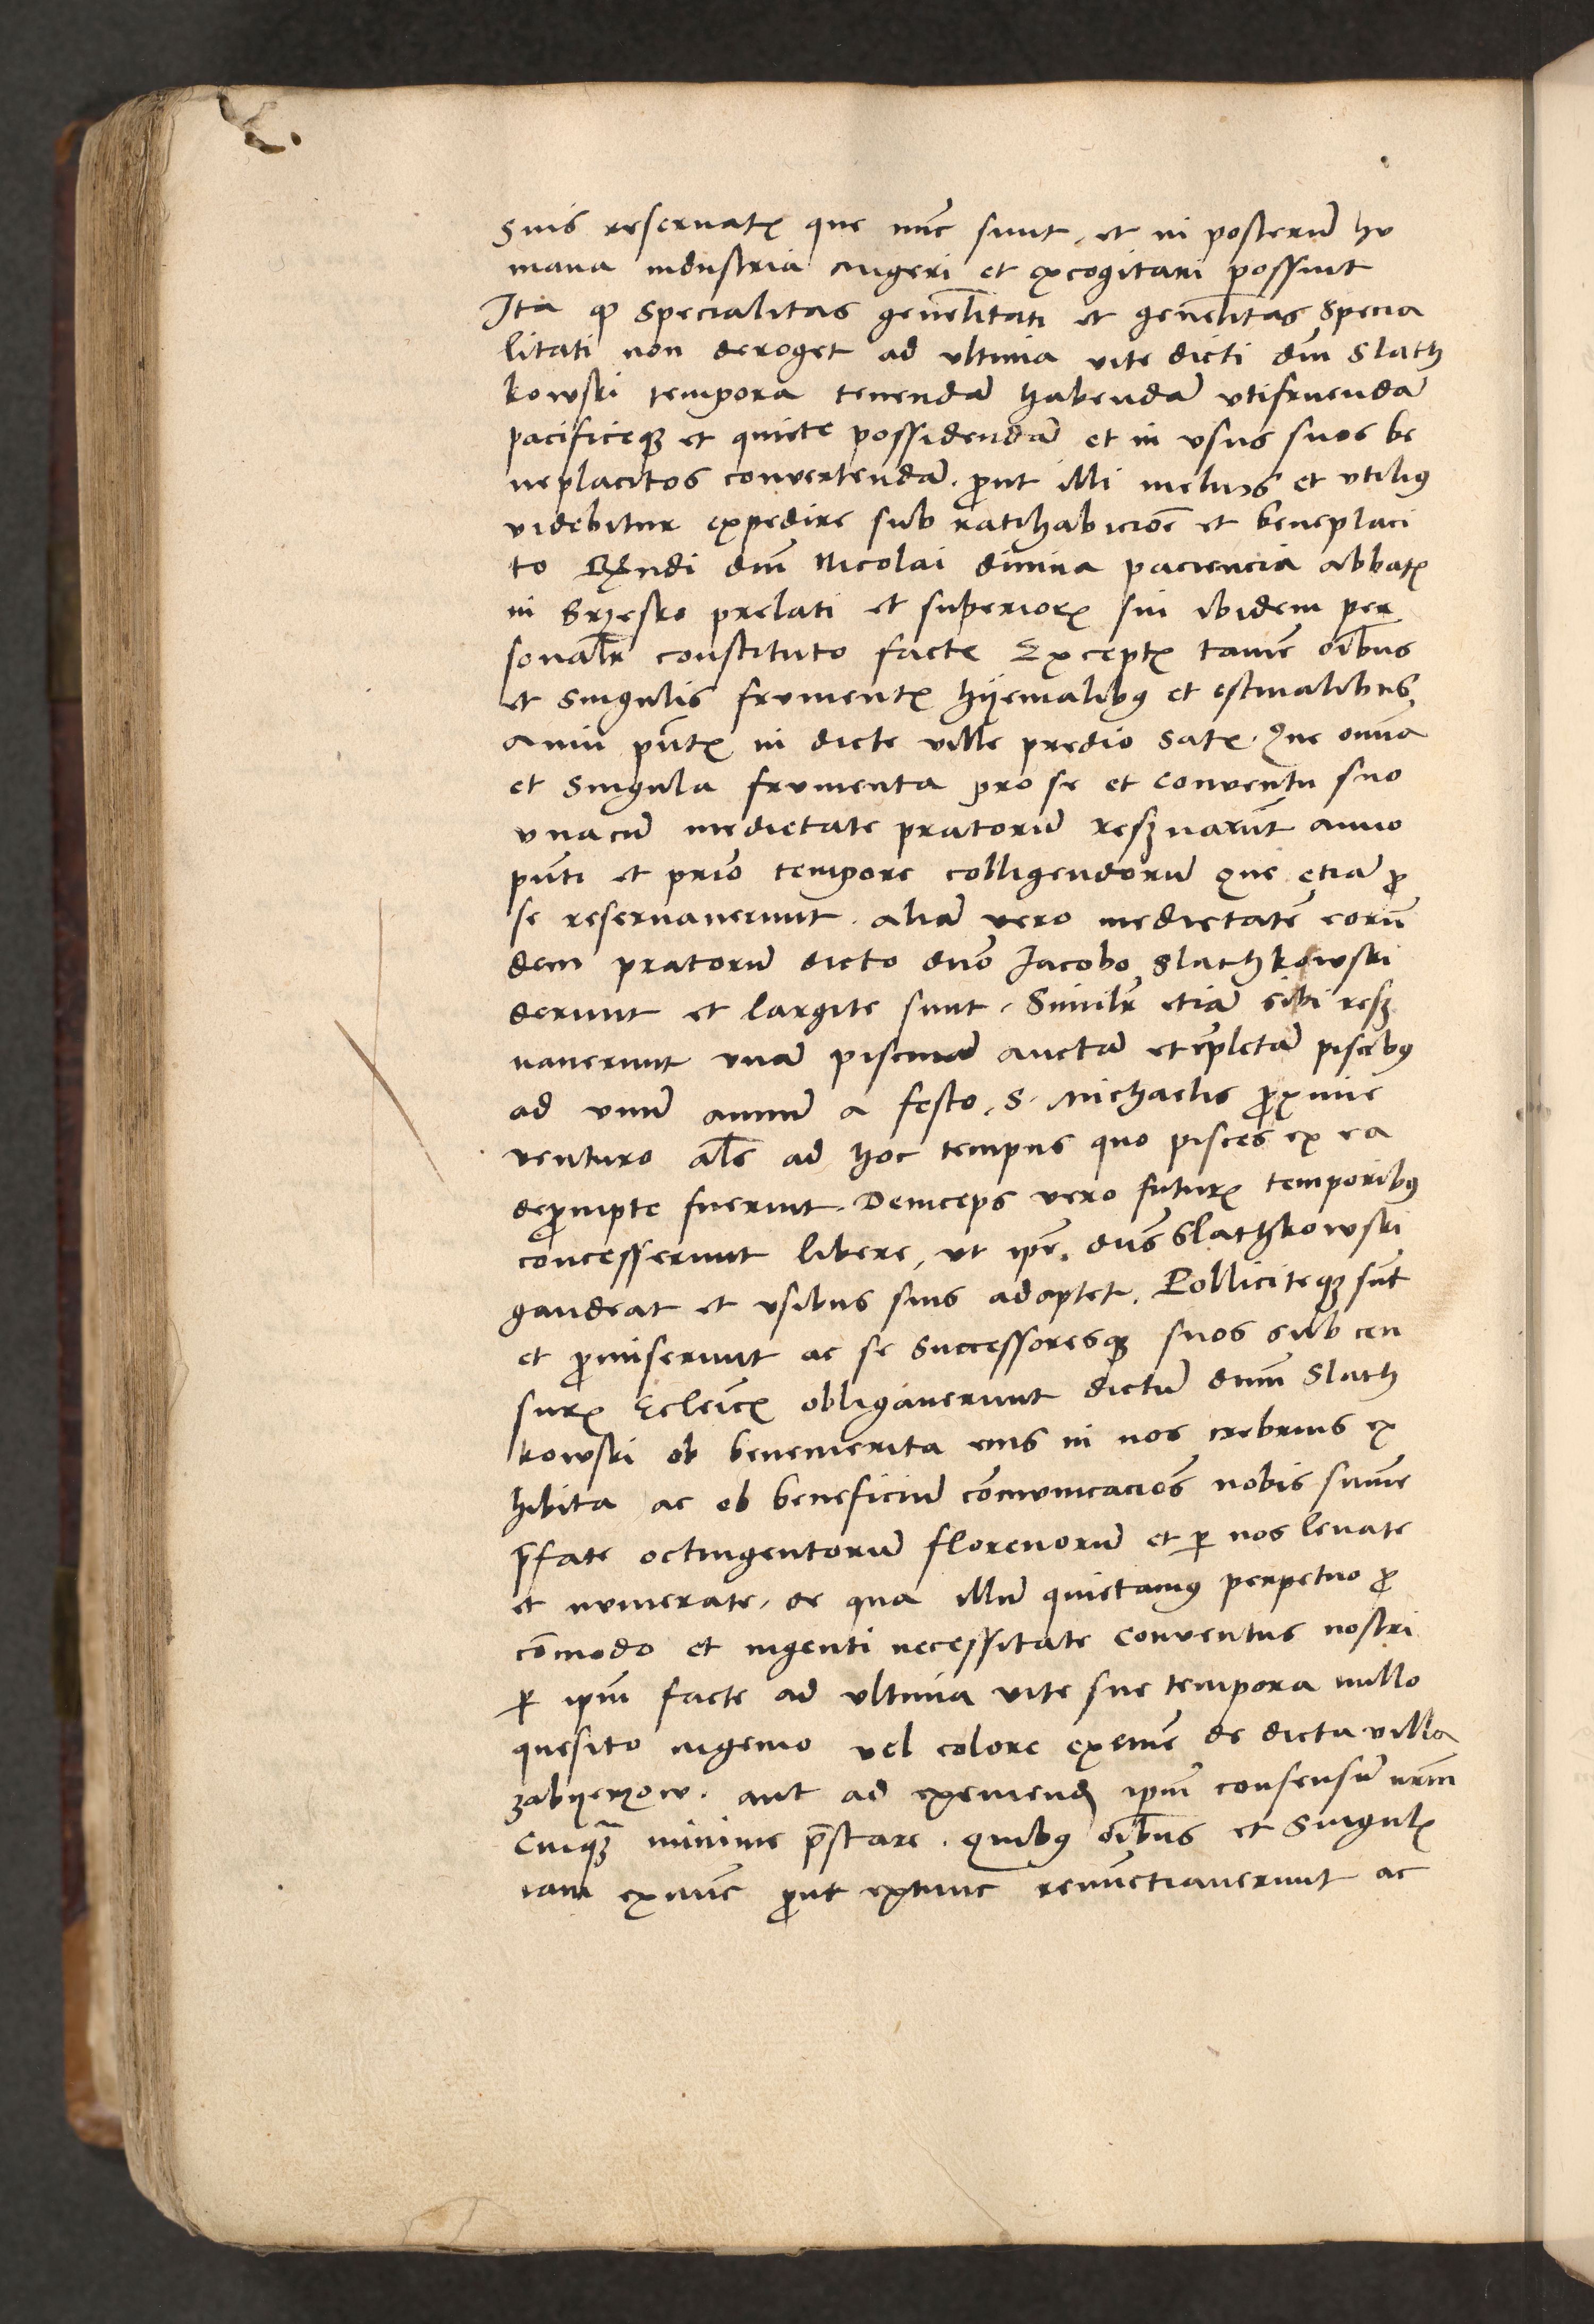 Suis reseruatꝭ que nūc sunt, et in posterū hu
mana industria augeri et excogitari possint
Ita ꝙ specialitas genēlitati et genēlitas specia
litati non deroget ad vltima vite dicti dn̄i Slath
kowski tempora tenendā habendā vtifruendā
pacificeqꝫ et quiete possidendā et in vsus suos be
neplacitos convertendā. ꝓut illi melius et vtiliꝰ
videbitur expedire sub ratihabiciōe et beneplaci
to Rn̄di dn̄i Nicolai diuina paciencia abbatꝭ
in Brzesko prelati et superiorꝭ sui ibidem per
sonalr̄ constituto facte Exceptꝭ tamē oīb̄us
et singulis frumentꝭ hÿemalibꝰ et estiualibus
anni pn̄tꝭ in dicte ville predio satꝭ. Que omīa
et singula frumenta pro se et conventu suo
vnacū medietate pratorū resꝫuarūt anno
pn̄ti et prīo tempore colligendorū que etiā ꝓ
se reseruauerunt. aliā vero medietatē eorū
dem pratorū dicto dn̄o Jacobo Slathkowski
derunt et largite sunt. Similr̄ etiā sibi resꝫ
uauerunt vnā piscinā auctā et īpletā piscibꝰ
ad vnū annū a festo S. Michaelis ꝓxime
venturo al̄s ad hoc tempus quo pisces ex ea
deꝓmpte fuerint. Deinceps vero futurꝭ temporibꝰ
concesserunt libere, vt ip̄e dn̄s Slathkowski
gaudeat et vsibus suis adaptet. Polliciteqꝫ sūt
et ꝓmiserunt ac se successoresqꝫ suos sub cen
surꝭ Ecleīcꝭ obligauerunt dictū dn̄m Slath
kowski ob benemerita eius in nos crebrius ex
hibita ac ob beneficiū cōmunicaciōs nobis sum̄e
p̄fate octingentorū florenorū et ꝑ nos leuate
et numerate, de qua illū quietamꝰ perpetuo ꝓ
cōmodo et ingenti necessitate conventus nostri
ꝑ ip̄m facte ad vltima vite sue tempora nullo
quesito ingenio vel colore exemē de dicta villa
zabÿerzow. aut ad exemendꝭ ip̄m consensū nr̄m
cuiqꝫ̄ minime p̄stare. quibꝰ oīb̄us et singulꝭ
iam exnūc ꝓut extunc renūctiauerunt ac